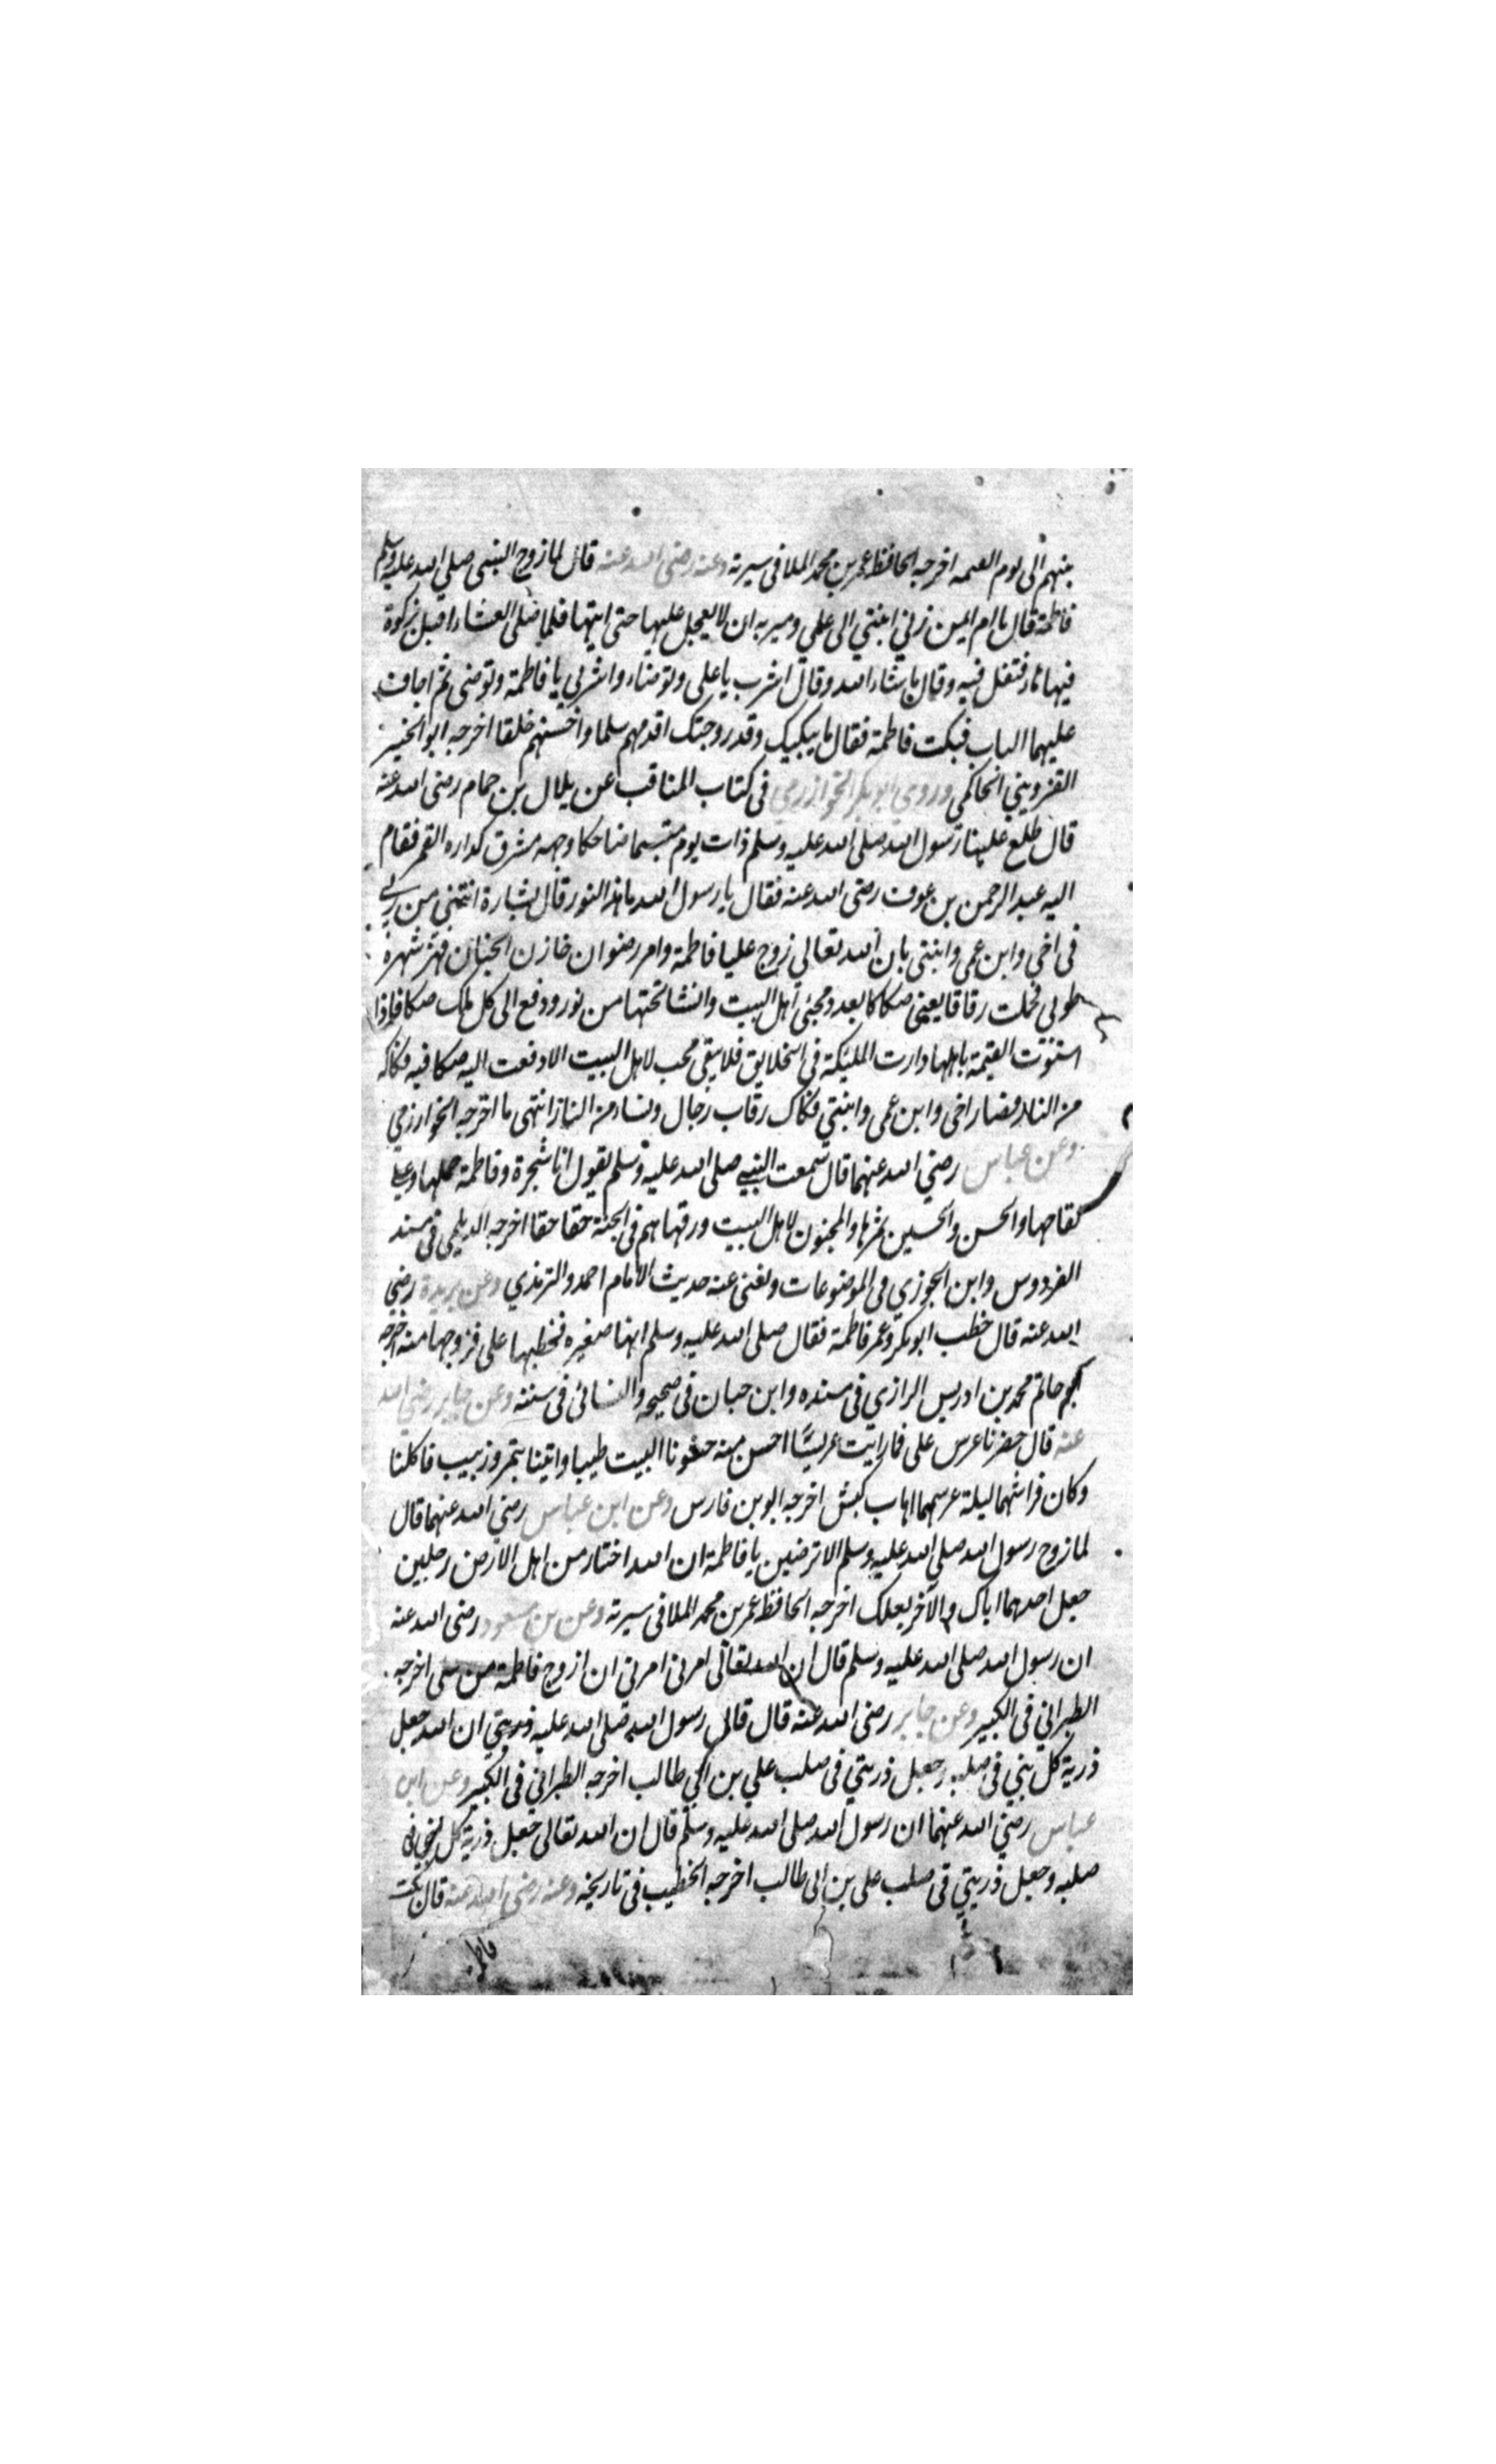 بينهم الى يوم القيمة اخرجه الحافظ عمر بن محمد الملا فى سيرته وعنه رضى الله عنه قال لما زوج النبى صلى الله عليه وسلم
فاطمة قال يا ام ايمن زفي ابنتي الى علي ومريه ان لا يعجل عليها حتى اتيها فلما صلى العشاء اقبل بركوة
فيها ماء فتفل فيه وقال ما شاء الله وقال اشرب يا على وتوضاء واشربي يا فاطمة وتوضى ثم اجاف
عليهما الباب فبكت فاطمة فقال ما يبكيك وقد زوجتك اقدمهم سلما واحسنهم خلقا اخرجه ابو الخير
القزويني الحاكمي وروى ابو بكر الخوارزمي فى كتاب المناقب عن بلال بن حمام رضى الله عنه
قال طلع علينا رسول الله صلى الله عليه وسلم ذات يوم متبسما ضاحكا وجهه مشرق كداره القمر فقام
اليه عبد الرحمن بن عوف رضى الله عنه فقال يا رسول الله ما هذا النور قال بشارة اتتني من ربي
فى اخي وابن عمي وابنتى بان الله تعالي زوج عليا فاطمة وامر رضوان خازن الجنان فهز شجرة
طوبي فحملت رقاقا يعني صكاكا بعدد محبي اهل البيت وانشا تحتها من نور ودفع الى كل ملك صكا فاذا
استوت القيمة باهلها دارت المليكة في الخلايق فلا يبقى محب لاهل البيت الا دفعت اليه صكا فيه فكاكه
من النار فصار اخى وابن عمى وابنتي فكاك رقاب رجال ونساء من النار انتهى ما اخرجه الخوارزمي
وعن عباس رضي الله عنهما قال سمعت النبي صلى الله عليه وسلم يقول انا شجرة وفاطمة حملها وعلي
لقاحها والحسن والحسين ثمرها والمحبون لاهل البيت ورقها هم فى الجنة حقا حقا اخرجه الديلمي فى مسند
الفردوس وابن الجوزي في الموضوعات ويغنى عنه حديث الامام احمد والترمذي وعن بريدة رضى
الله عنه قال خطب ابو بكر وعمر فاطمة فقال صلى الله عليه وسلم انها صغيره فخطبها على فزوجها منه اخرجه
ابو حاتم محمد بن ادريس الرازي فى مسنده وابن حبان فى صحيحه والنسائى فى سننه وعن جابر رضي الله
عنه قال حضرنا عرس على فما رايت عريسًا احسن منه حشونا البيت طيبا واتينا بتمر وزبيب فاكلنا
وكان فراشهما ليلة عرسهما اهاب كبش اخرجه ابو بن فارس وعن ابن عباس رضي الله عنهما قال
لما زوج رسول الله صلى الله عليه وسلم الا ترضين يا فاطمة ان الله اختار من اهل الارض رجلين
جعل احدهما اباك والآخر بعلك اخرجه الحافظ عمر بن محمد الملا فى سيرته وعن بن مسعود رضى الله عنه
ان رسول الله صلى الله عليه وسلم قال ان الله تعالى امرني امرني ان ازوج فاطمة من على اخرجه
الطبراني فى الكبير وعن جابر رضى الله عنه قال قال رسول الله صلى الله عليه ان الله جعل
ذرية كل نبي فى صلبه وجعل ذريتي فى صلب علي بن ابي طالب اخرجه الطبراني فى الكبير وعن ابن
عباس رضي الله عنهما ان رسول الله صلى الله عليه وسلم قال ان الله تعالى جعل ذرية كل نبي فى
صلبه وجعل ذريتي فى صلب على بن ابى طالب اخرجه الخطيب فى تاريخه وعنه رضى الله عنه قال بكت
فاطمة